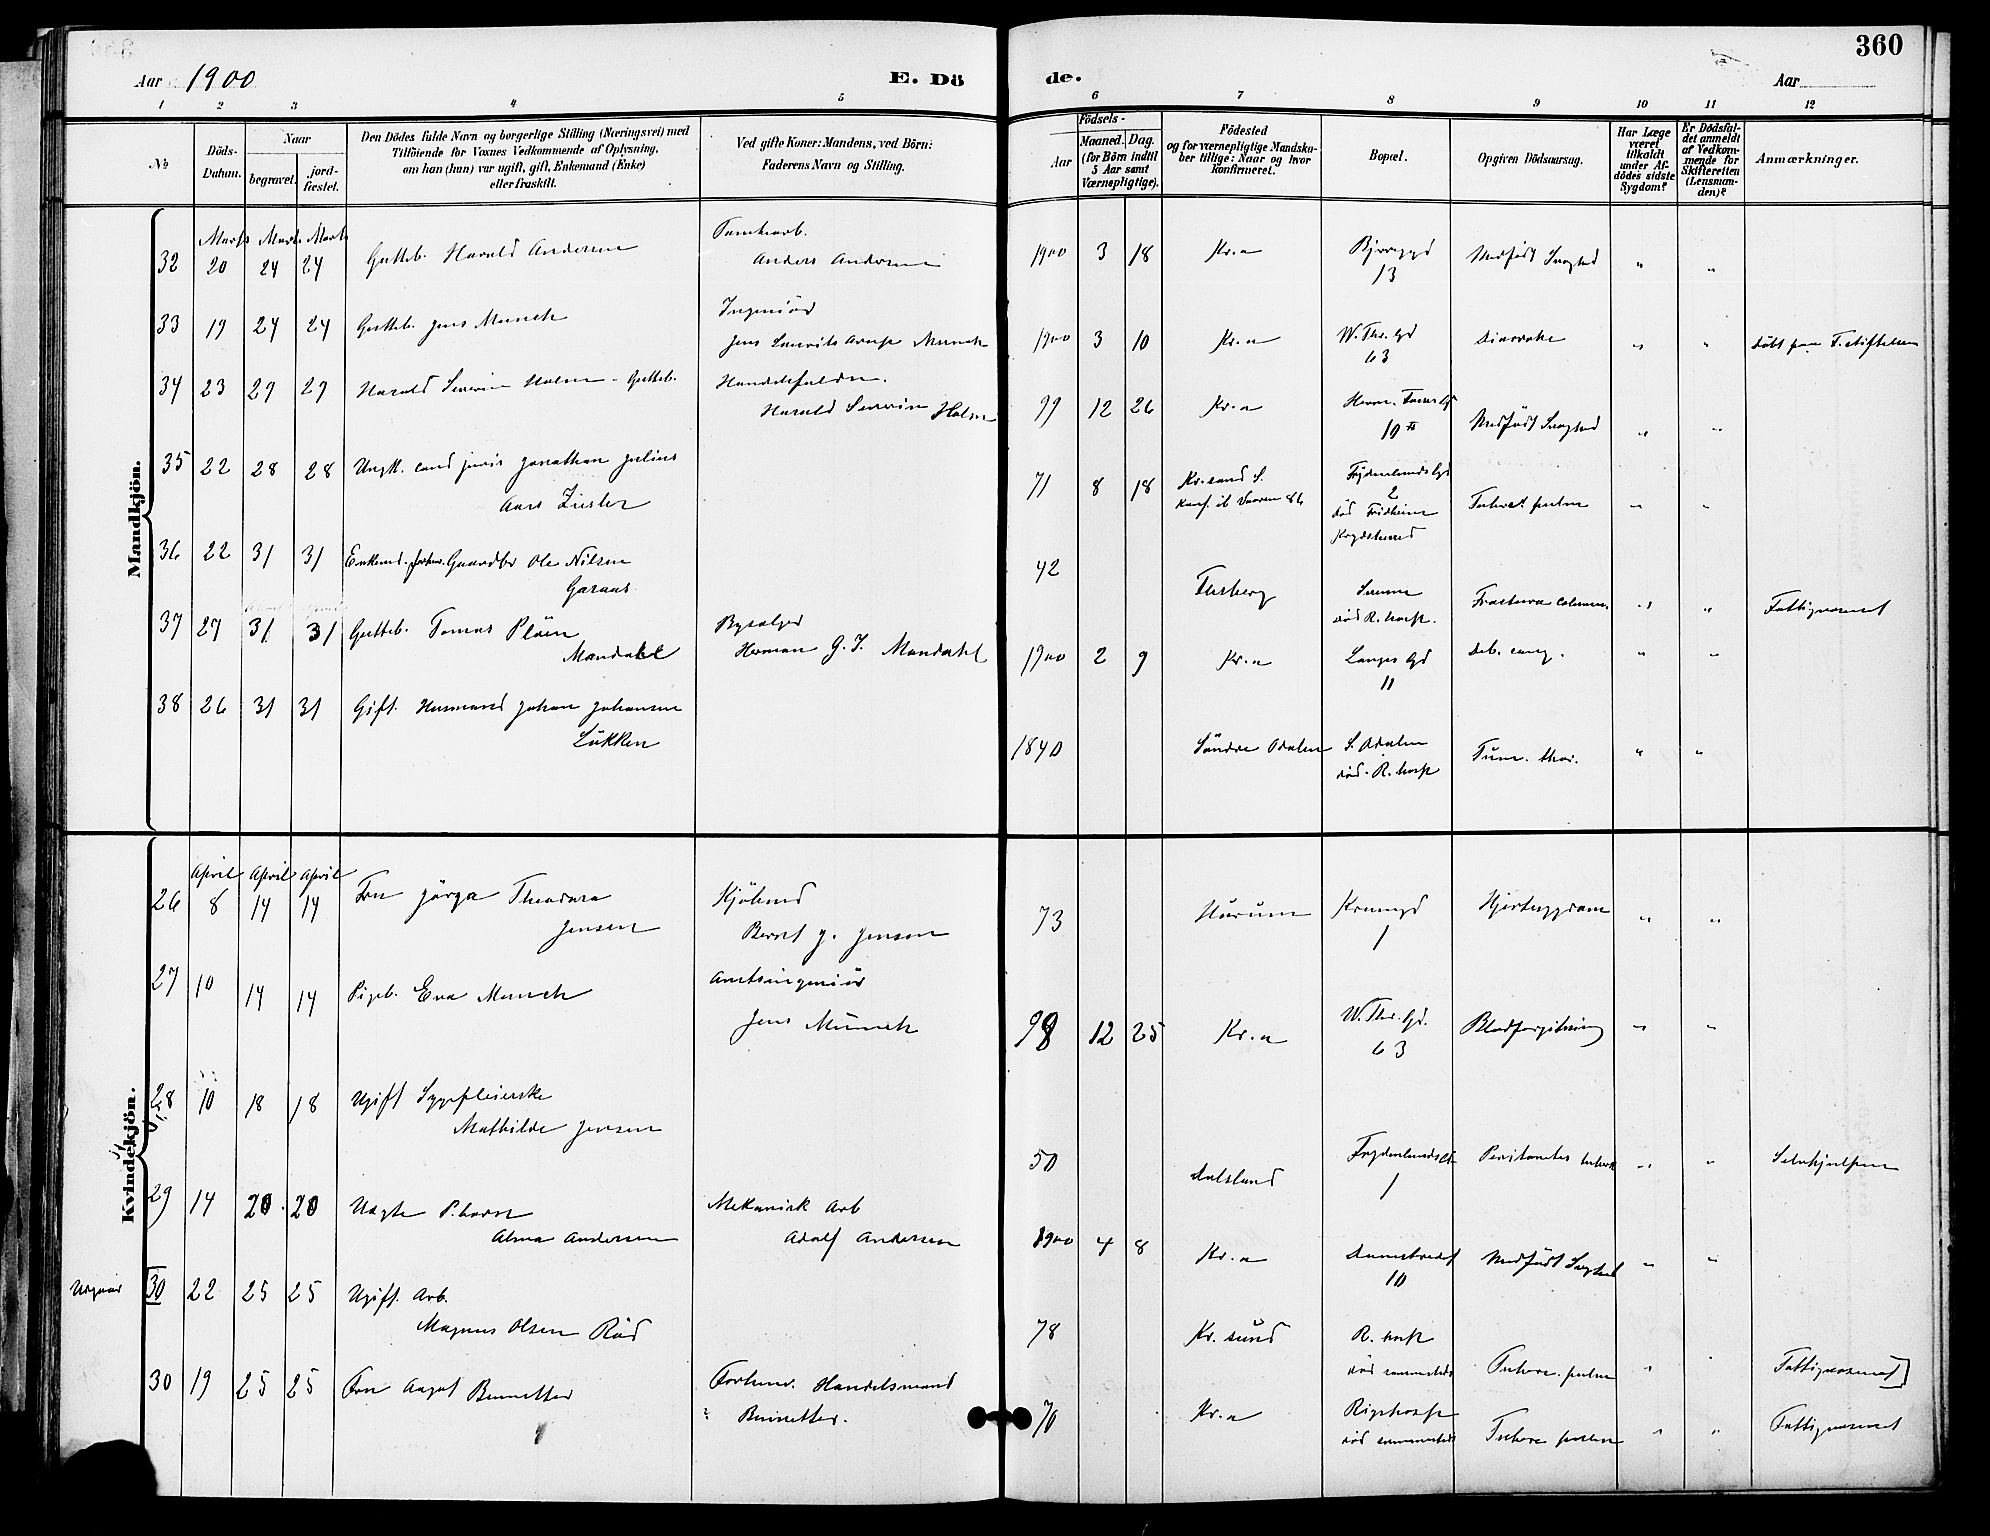 360
Aar 1900
E. Dö
de.
Aar
1 2 3 4 5 6 7 8 9 10 11 12
No
Döds-Datum.
Naar
begravet.
jord-fæstet.
Den Dödes fulde Navn og borgerlige Stilling (Næringsvei) med
Tilföiende for Voxnes Vedkommende af Oplysning,
om han (hun) var ugift, gift, Enkemand (Enke)
eller fraskilt.
Ved gifte Koner: Mandens, ved Börn:
Faderens Navn og Stilling.
Födsels-
Aar
Maaned. Dag.
(for Börn indtil
5 Aar samt
Værnepligtige).
Födested
og for værnepligtige Mandska-
ber tillige: Naar og hvor
konfirmeret.
Bopæl.
Opgiven Dödsaarsag.
Har Læge
været
tilkaldt
under Af-
dödes sidste
Sygdom?
Er Dödsfal-
det anmeldt
af Vedkom-
mende for
Skifteretten
(Lensman-
den)?
Anmærkninger.
Mandkjön.
Marts Marts Marts
32 20 24 24 Gutteb. Harald Andersen
Anders Andersen
1900 3 18 Kr.a
13
Medfödt Svaghed " "
33 19 24 24 Gutteb. Jens Munch
Ingeniör
Jens Laurits Arup Munch
1900 3 10 Kr.a W. Thr. Gd
63
Diarrohe " " Döbt paa F. stiftelsen
34 23 29 29 Harald Severin Holm - Gutteb.
Harald Severin Holm
99 12 26 Kr.a
10 II
Medfödt Svaghed " "
35 22 28 28 Ungk. cand juris Jonathan Julius
Aars
71 8 18 Kr.sand S.
Konf. ib Vaaren 86
Frydenlunds Gd
2
död Fridheim
Krydsherred
Tuberc. pulm " "
36 22 31 31 Enkemd. forhen. Gaardbr Ole Nilsen
Garaas
42 Flesberg
död R. hosp.
Fractura column. " " Fattigvæsenet
37 27 31 31 Gutteb. Tomas Plöen
Mandahl
Herman G. J. Mandahl
1900 2 9 Kr.a Langes Gd
11
Deb. cong. " "
38 26 31 31 Gift. Husmand Johan Johansen
Lökken
1840 Söndre Odalen S. Odalen
död. R. hosp
Tum. thor. " "
Kvindekjön.
April April April
26 8 14 14 Fru Jörga Theodora
Jensen
Kjöbmd
Bernt J. Jensen
73 Hurum Kronegd
1
Hjertesygdom " "
27 10 14 14 Pigeb. Eva Munch
Amtsingeniör
Jens Munch
98 12 25 Kr.a W. Thr. Gd.
63
Blodforgiftning " "
28 10 18 18 Ugift Sygepleierske
Mathilde Jensen
50 Dalsland Frydenlundsgd
1
Peritonites tuberk " " Selvhjulpen
29 14 20 20 Uægte P. barn
Alma Andersen
Mekanisk Arb
Adolf Andersen
1900 4 8 Kr.a
10
Medfödt Svaghed " "
30 22 25 25 Ugift. Arb.
Magnus Olsen Röd
78 Kr. sund R. hosp
död sammesteds
Tuberc. pulm " " Fattigvæsenet]
30 19 25 25 Fru Aagot Bennetter
Forhenv. Handelsmand
? Bennetter.
76 Kr.a Rigshosp
död sammesteds
Tuberc pulm " " Fattigvæsenet